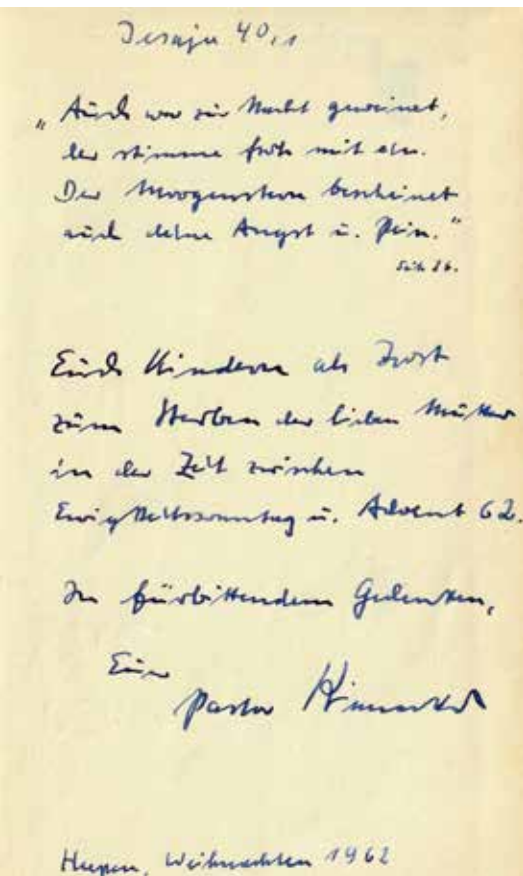 Jesaja 40,1
"Auch wer zur Nacht geweinet,
der stimme froh mit ein.
Der Morgenstern bescheinet
auch deine Angst u. Pein."
Seite 86.
Euch Kindern als Trost
zum Sterben der lieben Mutter
in der Zeit zwischen
Ewigkeitssonntag u. Advent 62.
In fürbittendem Gedenken,
Euer
Pastor
Heepen, Weihnachten 1962